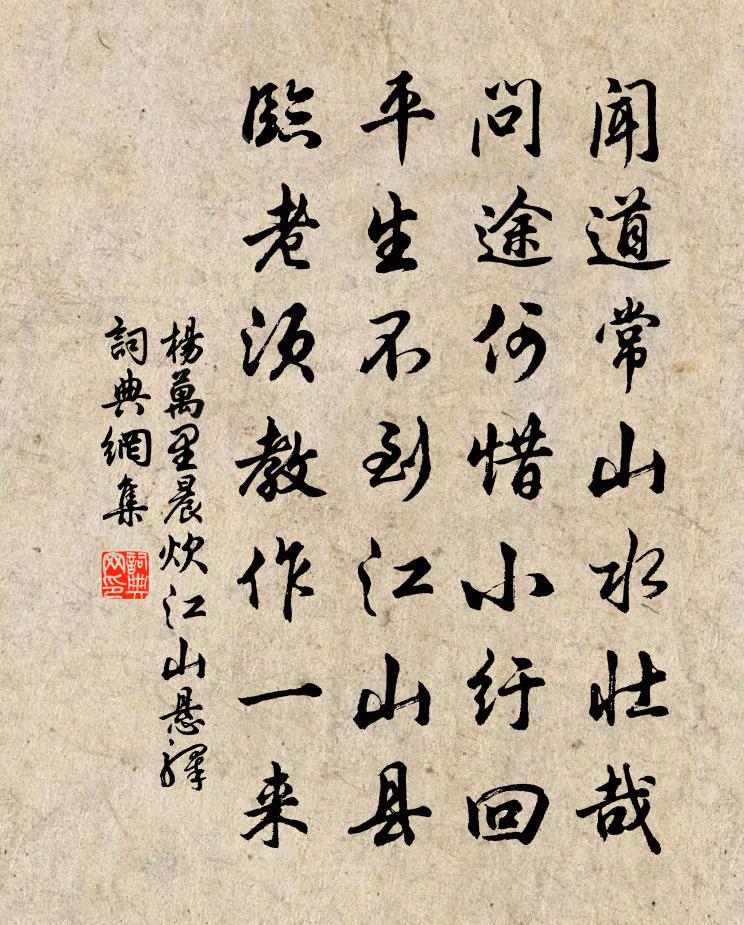 聞道常山水壮哉
問途何惜小紆回
平生不到江山县
臨老须教作一来
楊萬里晨炊江山悬驛
詞典網集
詞典网印